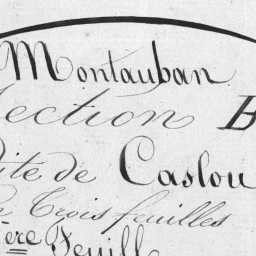 Montauban
Section B
Dite de Caslou
En Trois feuilles
1ère Feuill